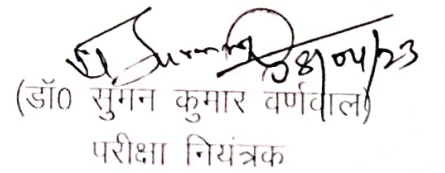 08/04/23
(डॉ0 सुगन कुमार वर्णवाल)
परीक्षा नियंत्रक